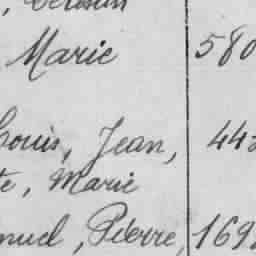 Marie 580
Louis, Jean, 442
te, Marie
nuel, Pierre, 169